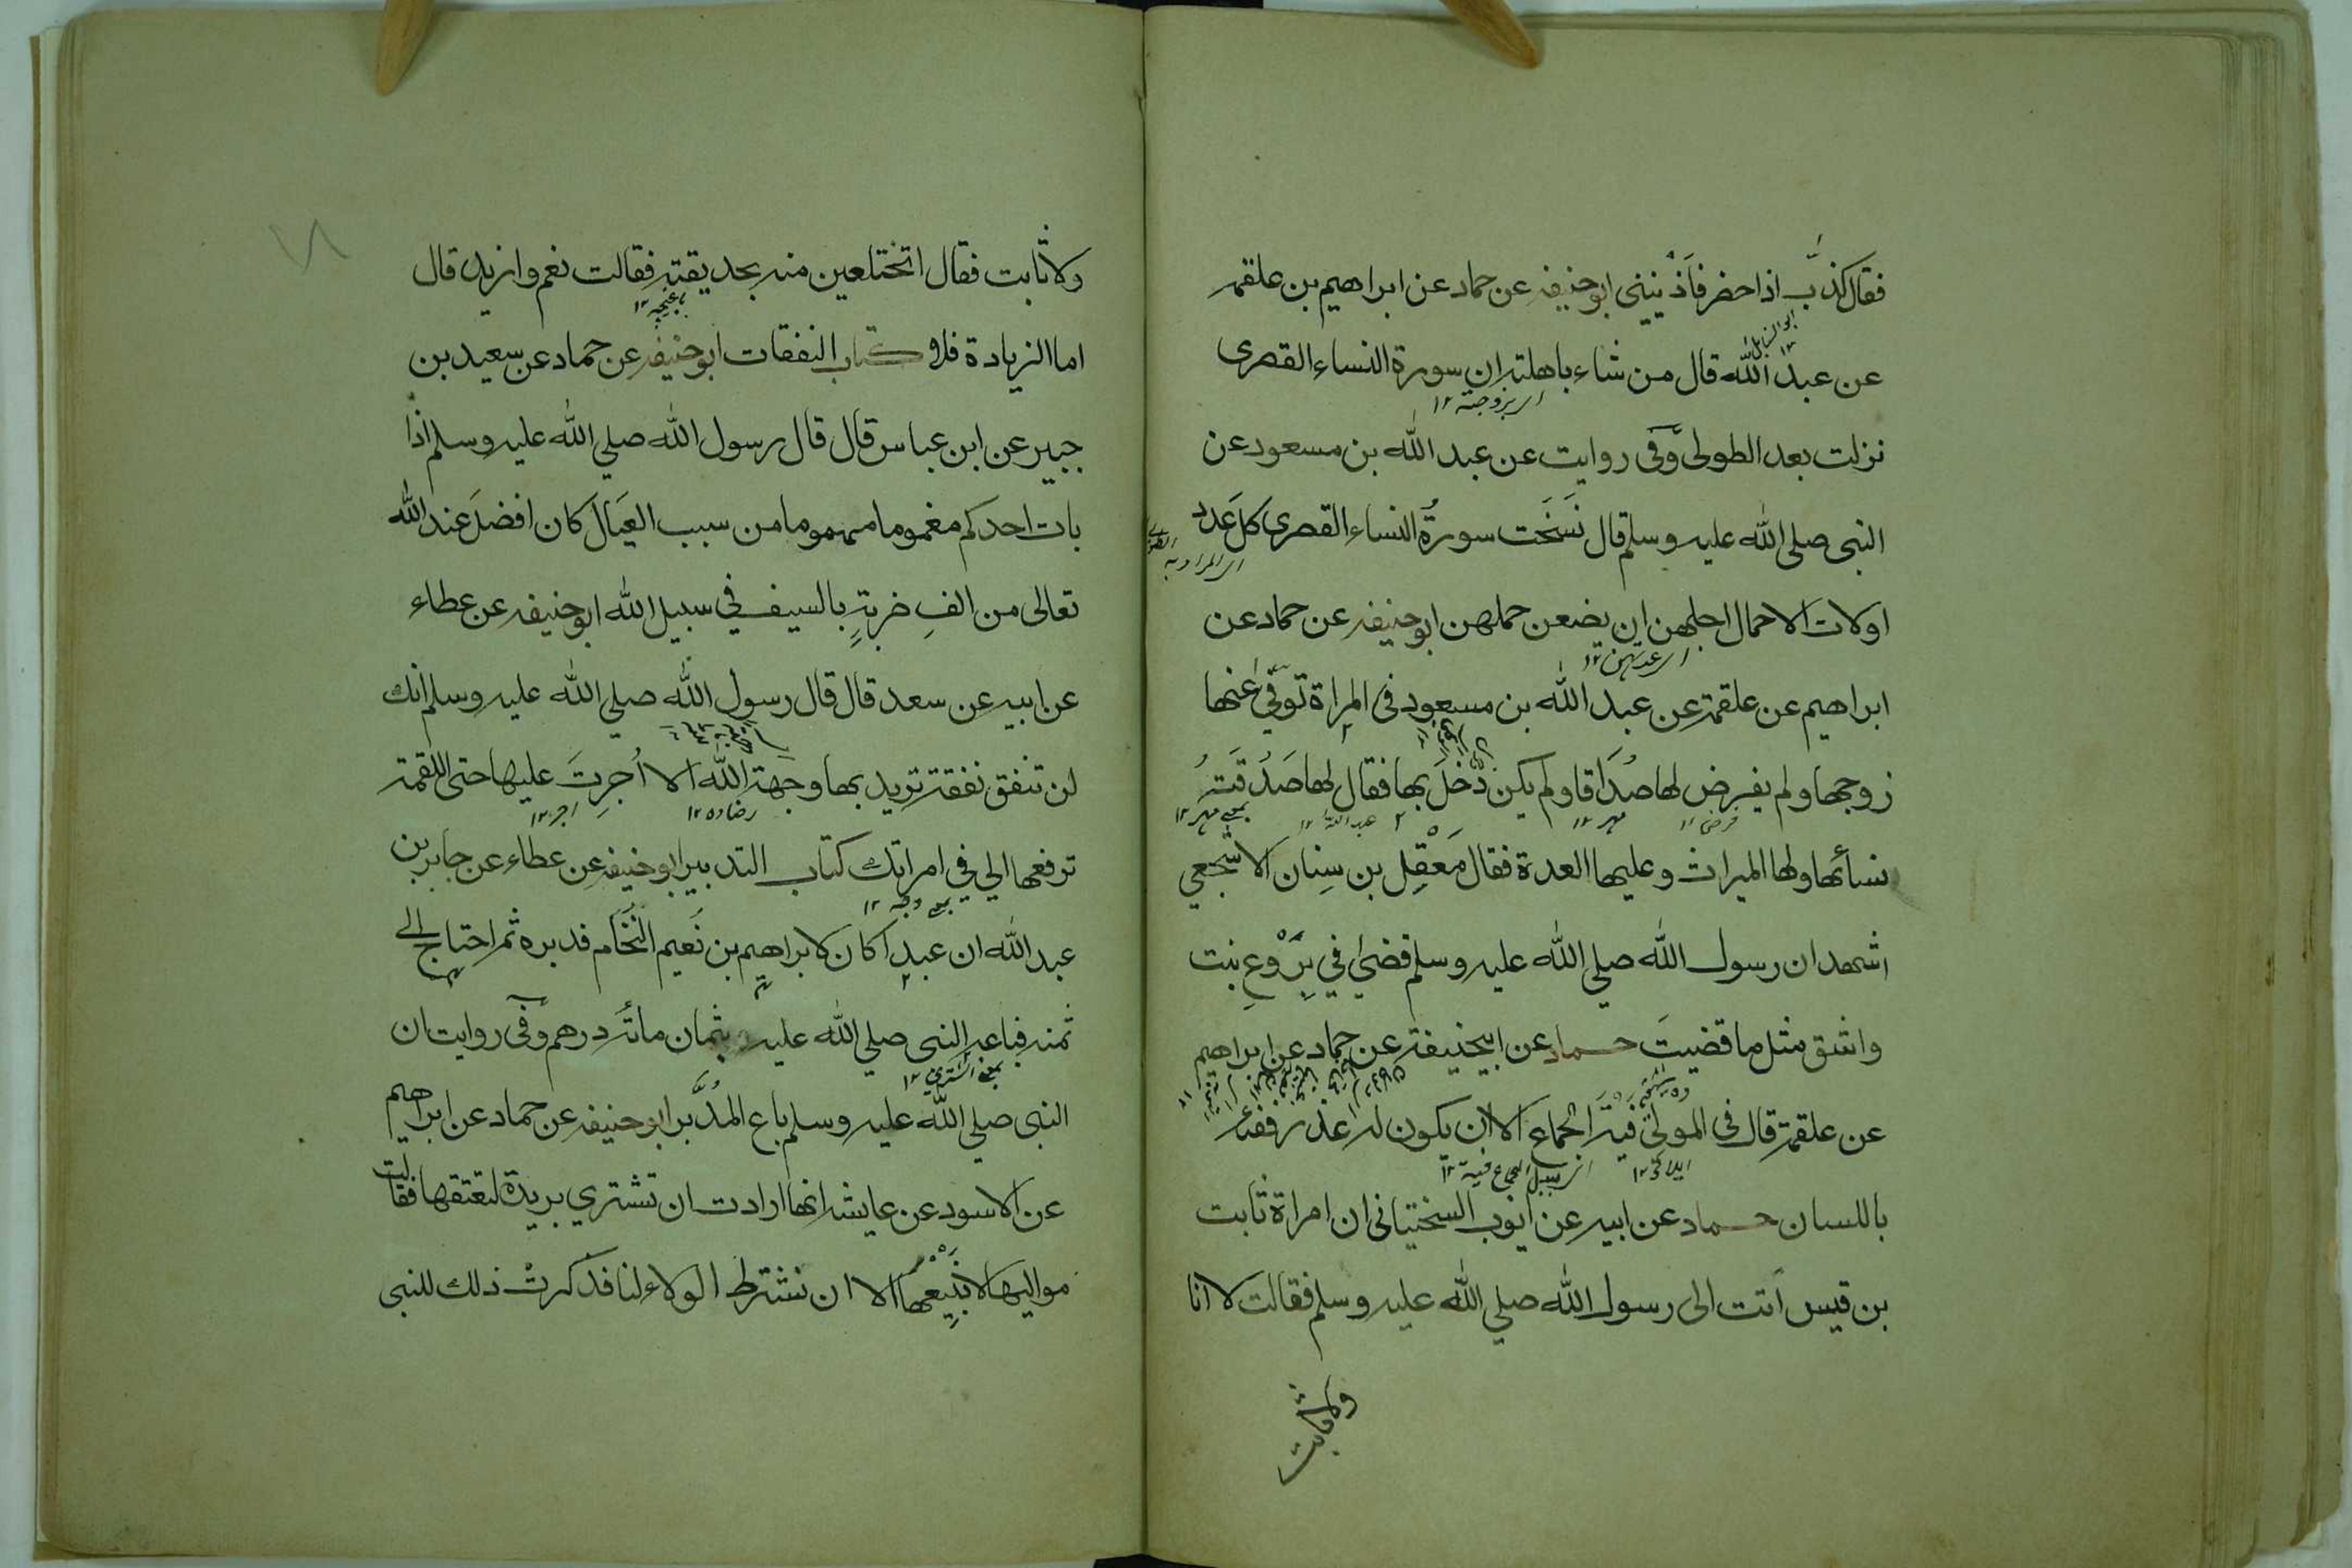 فقال كذب اذا حضر فاذنيني ابوحنيفه عن حماد عن ابراهيم بن علقمه
ابو السنابل ١٢
عن عبد الله قال من شاء باهلته ان سورة النساء القصرى
نزلت بعد الطولى وفى روايت عن عبد الله بن مسعود عن
النبى صلى الله عليه وسلم قال نَسَخَت سورةُ النساء القصرى كل عَدد
اولات الاحمال اجلهن ان يضعن حملهن ابوحنيفه عن حماد عن
ابراهيم عن علقمة عن عبد الله بن مسعود فى المراة توفي عنها
زوجها ولم يفرض لها صُدَاقا ولم يكن دَخَلَ بها فقال لها صَدُقَتهُ
مهر ١٢
عبد الله ١٢
بمعنى مهر ١٢
نسائها ولها الميراث وعليها العدة فقال مَعْقِل بن سِنان الاشجعي
اشهد ان رسول الله صلي الله عليه وسلم قضى في بِرَْوعِ بنت
واشق مثل ما قضيتَ حماد عن ابيحنيفة عن حماد عن ابراهيم
عن علقمة قال فى المولي فيئه الجماع الا ان يكون له عذر ففئه
باللسان حماد عن ابيه عن ايوب السختيانى ان امراة ثابت
بن قيس اتت الى رسول الله صلي الله عليه وسلم فقالت لا انا
ولا ثابت
ولا ثابت فقال اتختلعين منه بحديقته فقالت نعم وازيد قال
اما الزيادة فلا و كتاب النفقات ابوحنيفه عن حماد عن سعيد بن
جبير عن ابن عباس قال قال رسول الله صلي الله عليه وسلم اذا
بات احدكم مغموما مهموما من سبب العيَال كان افضلَ عند الله
تعالى من الفِ ضربةٍ بالسيف في سبيل الله ابوحنيفه عن عطاء
عن ابيه عن سعد قال قال رسول الله صلي الله عليه وسلم انك
لن تنفق نفقة تريد بها وجهة الله الا اُجِرتَ عليها حتى اللقمة
اجر ١٢
ترفعها الي في امراتك كتاب التدبير ابوحنيفه عن عطاء عن جابر بن
عبد الله ان عبدا كان لابراهيم بن نَعيم النَّحَّام فدبره ثم احتاج الى
ثمنه فباعه النبى صلي الله عليه بثمان مائة درهم وفى روايت ان
بمعنى اشترى ١٢
النبى صلي الله عليه وسلم باع المدَّبر ابوحنيفه عن حماد عن ابراهيم
عن الاسود عن عايشه انها ارادت ان تشتري بريدة لتعتقها فقالت
مواليها لا نَبِيْعُها الا ان نشترط الولاء لنا فذكرت ذلك للنبى